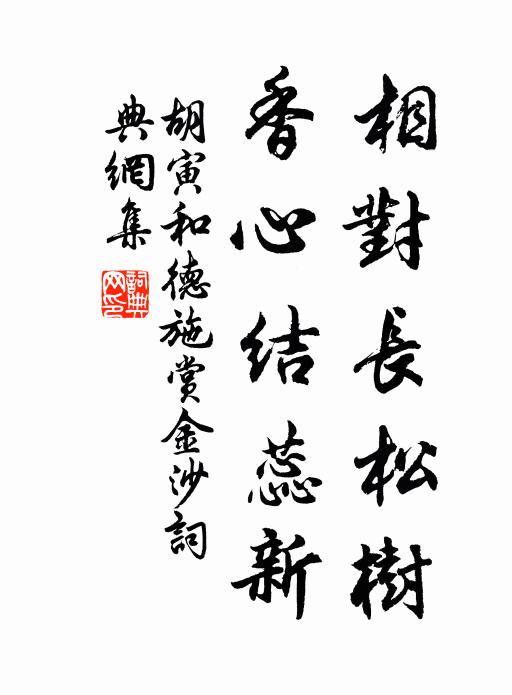 相對長松樹
香心結蕊新
胡寅和德施賞金沙詞
典網集
詞典
网印